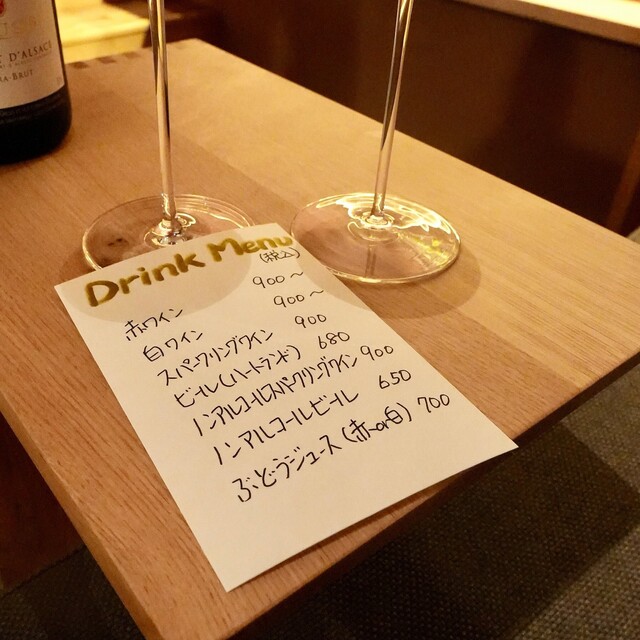 E D'ALSACE
RA-BRUT
Drink Menu
(税込)
赤ワイン 900~
白ワイン 900~
スパークリングワイン 900
ビール(ハートランド) 680
ノンアルコールスパークリングワイン 900
ノンアルコールビール 650
ぶどうジュース(赤or白) 700